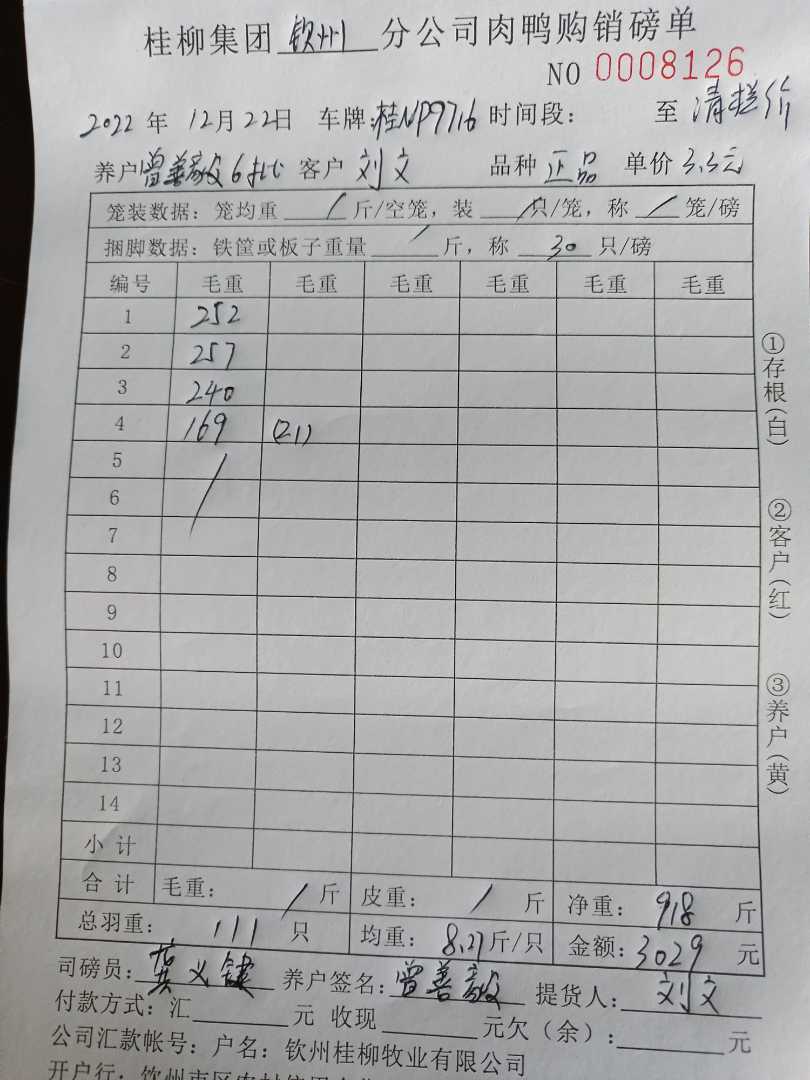 桂柳集团 钦州 分公司肉鸭购销磅单
NO 0008126
2022 年 12月 22日 车牌:桂NP9716 时间段: 至 清栏价
养户 曾善毅 6批 客户 刘文 品种 正品 单价 3.3元
笼装数据: 笼均重 / 斤/空笼,装 / 只/笼,称 / 笼/磅
捆脚数据: 铁筐或板子重量 / 斤,称 30 只/磅
编号 毛重 毛重 毛重 毛重 毛重 毛重
1 252
2 257
3 240
4 169 (21)
5 /
6
7
8
9
10
11
12
13
14
小计
合计 毛重: / 斤 皮重: / 斤 净重: 918 斤
总羽重: 111 只 均重: 8.27斤/只 金额: 3029 元
司磅员: 义键 养户签名: 曾善毅 提货人: 刘文
付款方式: 汇 元 收现 元欠(余): 元
公司汇款帐号: 户名: 钦州桂柳牧业有限公司
开户行: 钦州市区农村信用合
①存根(白)
②客户(红)
③养户(黄)